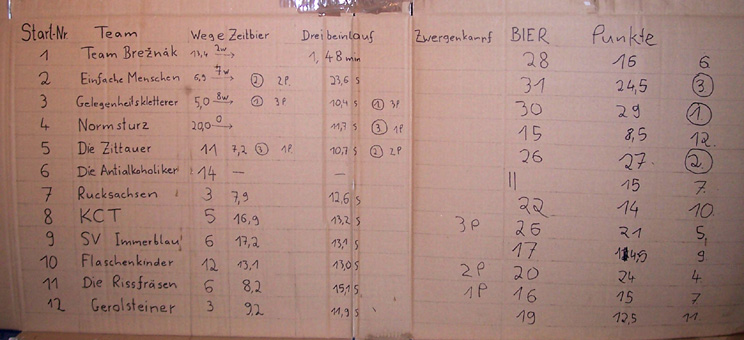 Start-Nr. Team Wege Zeitbier Dreibeinlauf Zwergenkampf BIER Punkte
1 Team Brežnák 13,4 2w 1,48 min 28 15 6
2 Einfache Menschen 6,9 7w ② 2P 23,6 s 31 24,5 ③
3 Gelegenheitskletterer 5,0 8w ① 3P 10,4 s ① 3P 30 29 ①
4 Normsturz 20,0 0 11,7 s ③ 1P 15 8,5 12.
5 Die Zittauer 11 7,2 ③ 1P 10,7 s ② 2P 26 27. ②
6 Die Antialkoholiker 14 – – 11 15 7.
7 Rucksachsen 3 7,9 12,6 s 22 14 10.
8 KCT 5 16,9 13,2 s 3P 25 21 5,
9 SV Immerblau 6 17,2 13,1 s 17 14,5 9
10 Flaschenkinder 12 13,1 13,0 s 2P 20 24 4
11 Die Rissfräsen 6 8,2 15,1 s 1P 16 15 7
12 Gerolsteiner 3 9,2 11,9 s 19 12,5 11